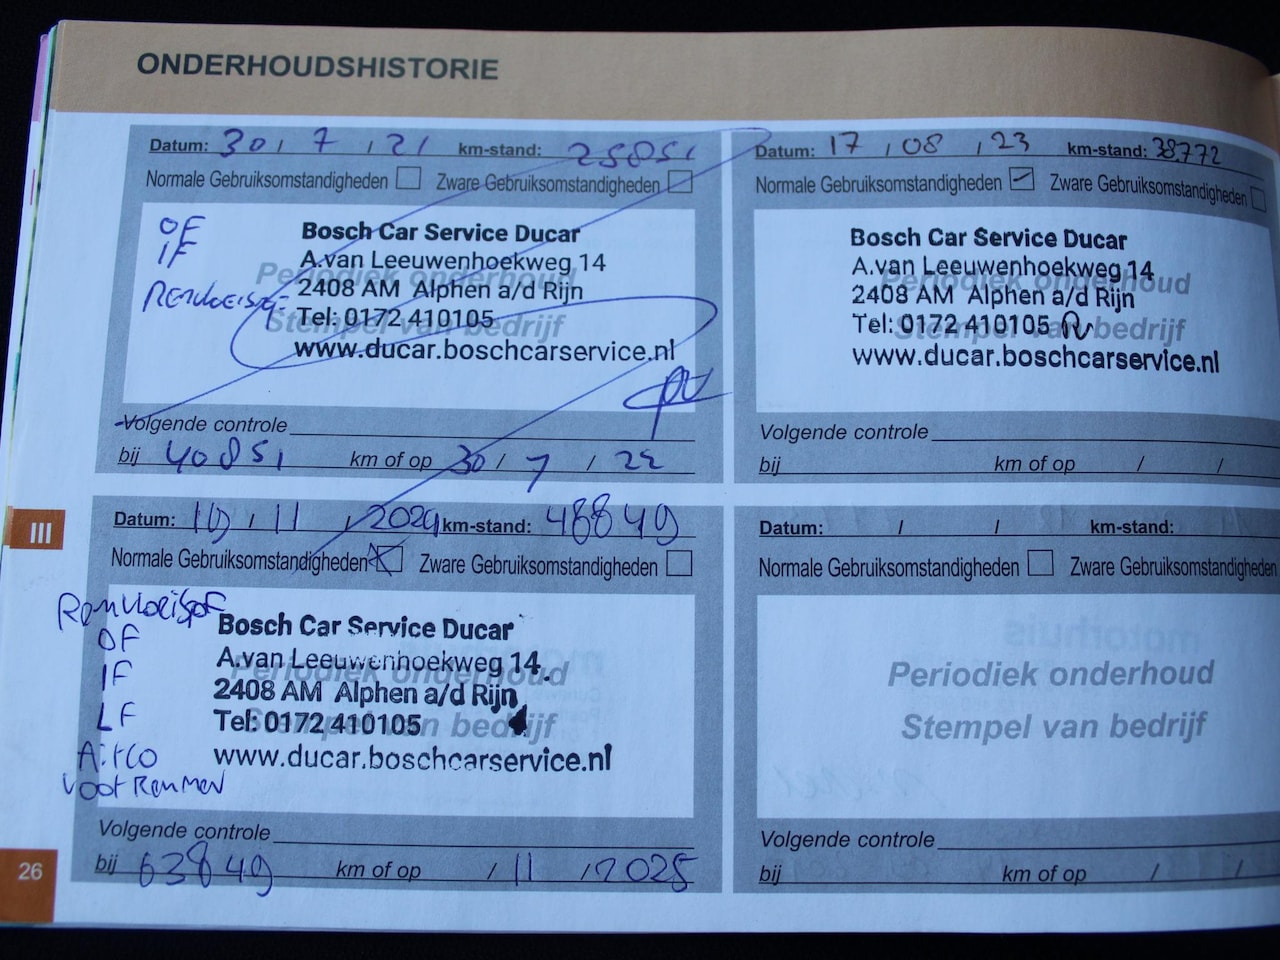 ONDERHOUDSHISTORIE
Datum: 30 / 7 / 21 km-stand: 25851
Normale Gebruiksomstandigheden Zware Gebruiksomstandigheden
OF
IF
Remvloeistof
Periodiek onderhoud
Stempel van bedrijf
Bosch Car Service Ducar
A.van Leeuwenhoekweg 14
2408 AM Alphen a/d Rijn
Tel: 0172 410105
www.ducar.boschcarservice.nl
Volgende controle
bij 40851 km of op 30 / 7 / 22
Datum: 17 / 08 / 23 km-stand: 38772
Normale Gebruiksomstandigheden Zware Gebruiksomstandigheden
Periodiek onderhoud
Stempel van bedrijf
Bosch Car Service Ducar
A.van Leeuwenhoekweg 14
2408 AM Alphen a/d Rijn
Tel: 0172 410105
www.ducar.boschcarservice.nl
Volgende controle
bij km of op / /
III
Datum: / 11 / 2024 km-stand: 48849
Normale Gebruiksomstandigheden Zware Gebruiksomstandigheden
Remvloeistof
OF
IF
LF
Airco
voor Remmen
Periodiek onderhoud
Stempel van bedrijf
Bosch Car Service Ducar
A.van Leeuwenhoekweg 14
2408 AM Alphen a/d Rijn
Tel: 0172 410105
www.ducar.boschcarservice.nl
Volgende controle
bij 63849 km of op / 11 / 2025
Datum: / / km-stand:
Normale Gebruiksomstandigheden Zware Gebruiksomstandigheden
Periodiek onderhoud
Stempel van bedrijf
Volgende controle
bij km of op / /
26